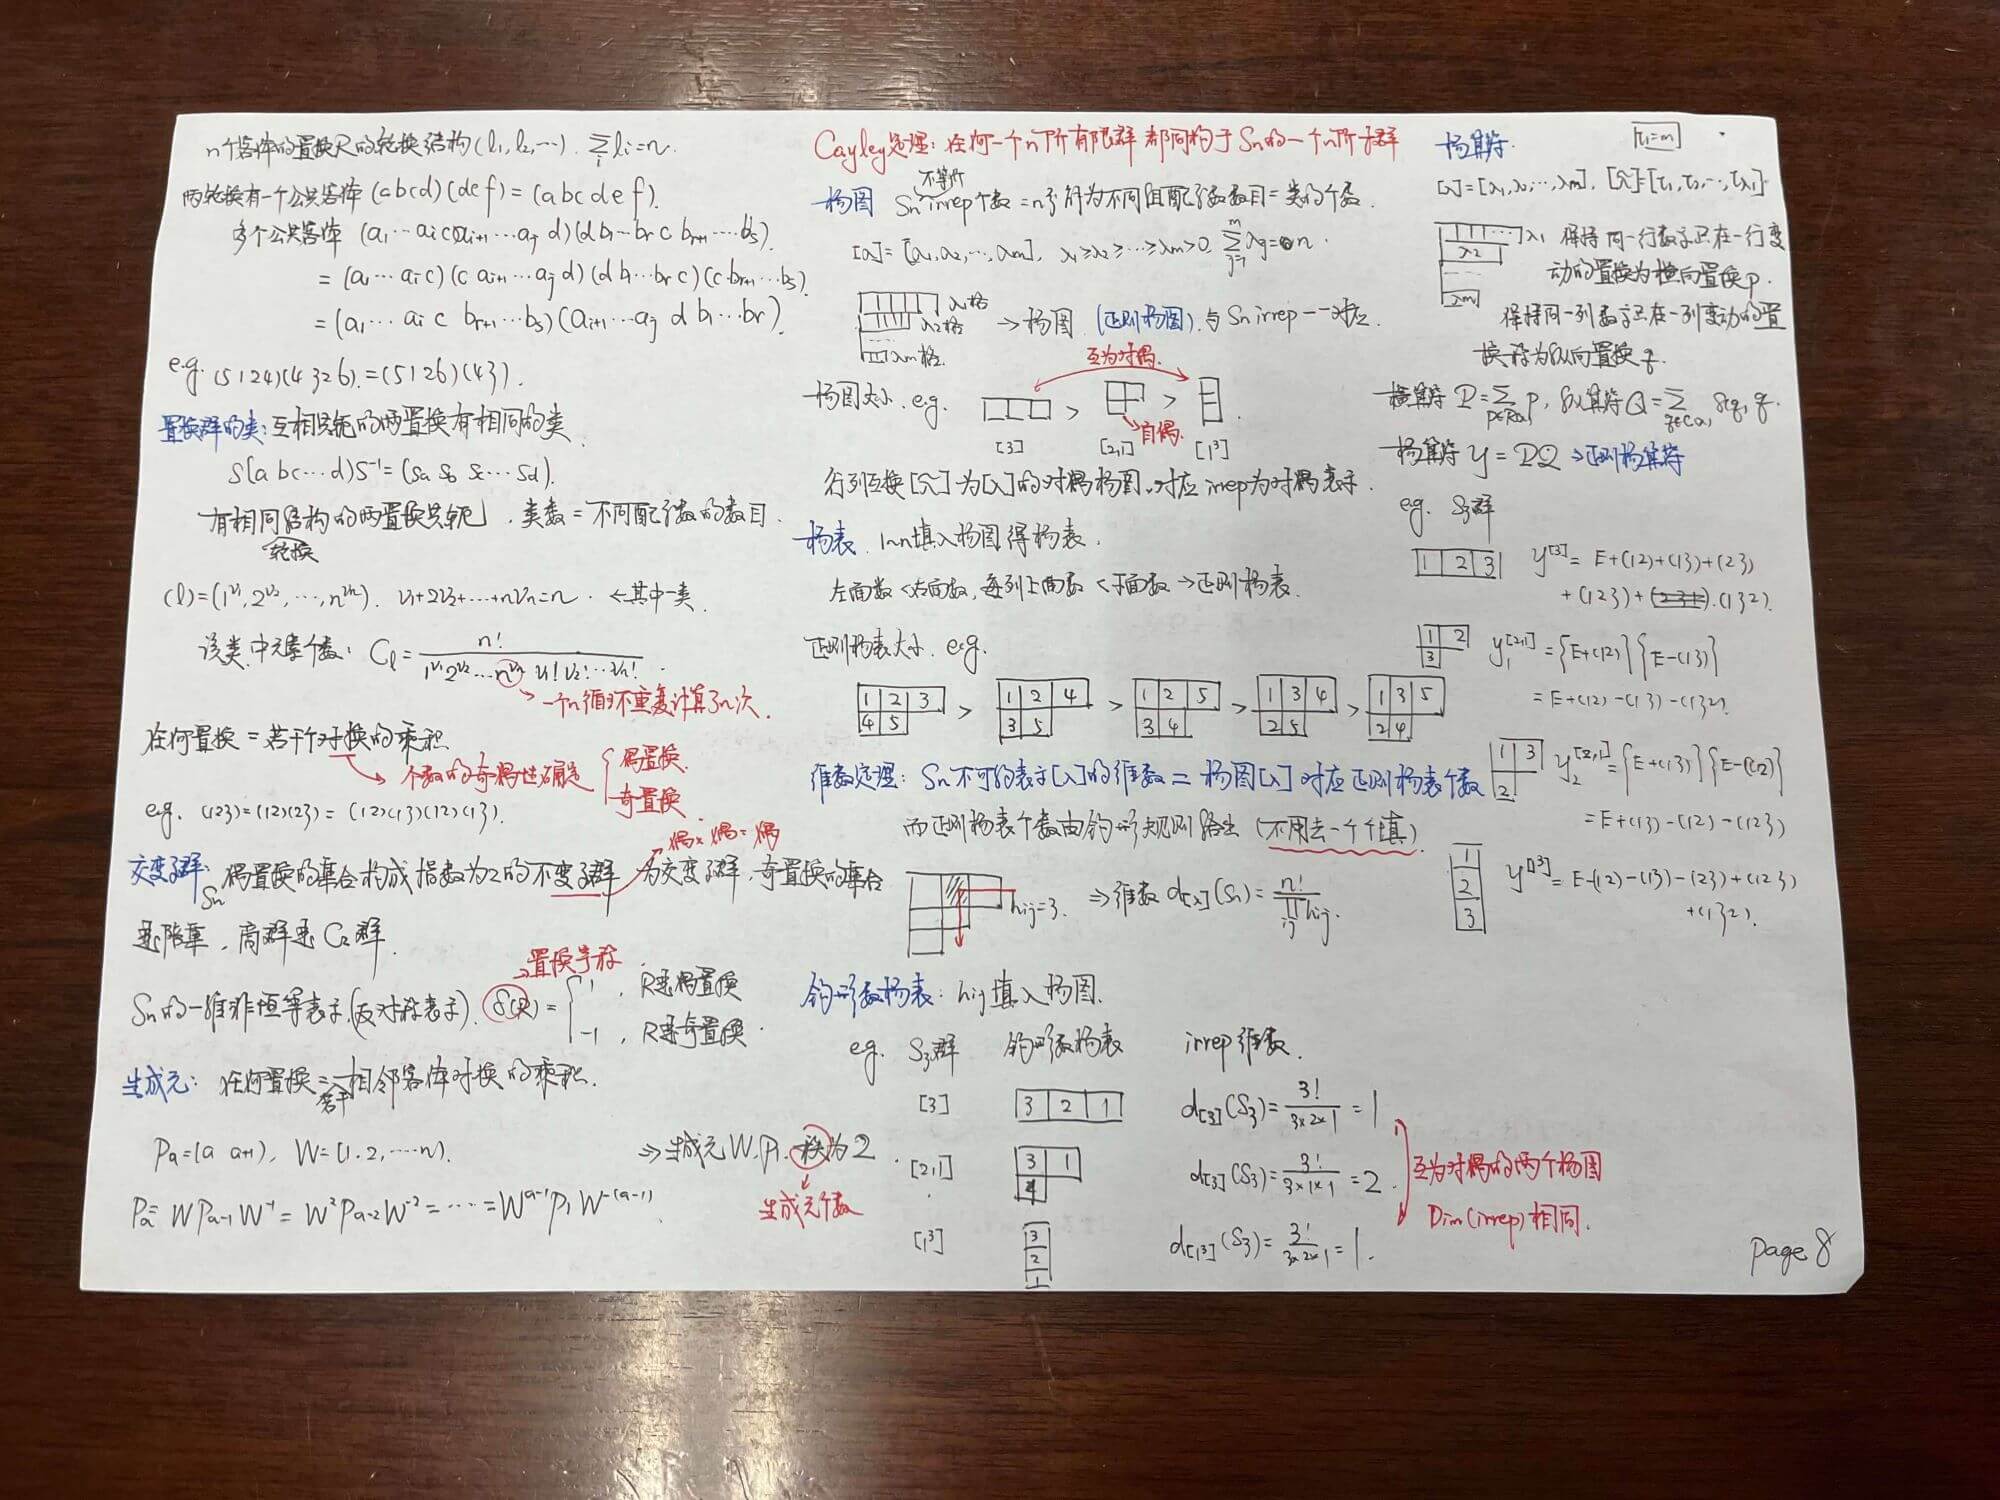 n个客体的置换R的轮换结构(l₁,l₂,…). ∑ᵢ lᵢ=n.
两轮换有一个公共客体 (abcd)(def)=(abcdef).
多个公共客体 (a₁⋯aᵢcaᵢ₊₁⋯aⱼ d)(d b₁⋯bᵣ c bᵣ₊₁⋯bₛ)
=(a₁⋯aᵢc)(c aᵢ₊₁⋯aⱼ d)(d b₁⋯bᵣ c)(c bᵣ₊₁⋯bₛ)
=(a₁⋯aᵢ c bᵣ₊₁⋯bₛ)(aᵢ₊₁⋯aⱼ d b₁⋯bᵣ).
e.g. (5124)(4326)=(5126)(43).
置换群的类:互相共轭的两置换有相同的类
S(abc⋯d)S⁻¹=(Sa Sb Sc⋯Sd).
有相同结构的两置换共轭,类数=不同配分数的数目.
轮换
(l)=(1^ν₁,2^ν₂,…,n^νₙ). ν₁+2ν₂+…+nνₙ=n. ←其中一类.
该类中元素个数: C_l = n! / (1^ν₁ 2^ν₂⋯n^νₙ ν₁!ν₂!⋯νₙ!).
→一个n循环重复计算了n次.
任何置换=若干个对换的乘积
→个数的奇偶性确定 { 偶置换. 奇置换.
e.g. (123)=(12)(23)=(12)(13)(12)(13).
偶×偶=偶
交变子群: Sn偶置换的集合构成指数为2的不变子群为交变子群,奇置换的集合
是陪集,商群是C₂群.
→置换宇称
Sn的一维非恒等表示(反对称表示). δ(R)= { 1, R是偶置换
-1, R是奇置换.
生成元: 任何置换=若干相邻客体对换的乘积.
Pa=(a a+1), W=(1.2,⋯⋯n). ⇒生成元W.P₁.秩为2.
Pa=WPₐ₋₁W⁻¹=W²Pₐ₋₂W⁻²=⋯⋯=W^(a-1)P₁W^-(a-1)
生成元个数
Cayley定理:任何一个n阶有限群都同构于Sn的一个n阶子群
不等价
杨图 Sn irrep个数=n分解为不同的配分数数目=类的个数.
[λ]=[λ₁,λ₂,⋯,λm], λ₁≥λ₂≥⋯≥λm>0. ∑_{j=1}^{m} λⱼ=n.
λ₁格
λ₂格
λm格.
→杨图.(正则杨图).与Sn irrep一一对应.
互为对偶.
杨图大小. e.g. > > .
[3] [2,1] [1³]
自偶.
行列互换[λ̃]为[λ]的对偶杨图.对应irrep为对偶表示.
杨表. 1~n填入杨图得杨表.
左面数<右面数,每列上面数<下面数→正则杨表.
正则杨表大小. e.g.
1 2 3 > 1 2 4 > 1 2 5 > 1 3 4 > 1 3 5
4 5 3 5 3 4 2 5 2 4
维数定理: Sn不可约表示[λ]的维数=杨图[λ]对应正则杨表个数
而正则杨表个数由钩形规则给出(不用去一个个填).
hij=3. ⇒维数 d[λ](Sn)= n! / ∏ᵢⱼ hij.
钩形数杨表: hij填入杨图.
e.g. S₃群 钩形数杨表 irrep维数.
[3] 3 2 1 d[3](S₃)= 3! / 3×2×1 =1
[2,1] 3 1 d[3](S₃)= 3! / 3×1×1 =2.
[1³] 3 2 1 d[1³](S₃)= 3! / 3×2×1 =1.
互为对偶的两个杨图
Dim(irrep)相同.
杨算符. τ₁=m
[λ]=[λ₁,λ₂,⋯,λm], [λ̃]=[τ₁,τ₂,⋯,τλ₁].
λ₁
λ₂
λm
保持同一行数字只在一行变
动的置换为横向置换p.
保持同一列数字只在一列变动的置
换称为纵向置换q.
横算符 P=∑_{p∈R(λ)} p, 纵算符 Q=∑_{q∈C(λ)} δ(q)q.
杨算符 Y=PQ→正则杨算符
eg. S₃群
1 2 3 y^[3]= E+(12)+(13)+(23)
+(123)+(132).
1 2
3
y₁^[2,1]={E+(12)}{E-(13)}
=E+(12)-(13)-(132).
1 3
2
y₂^[2,1]={E+(13)}{E-(12)}
=E+(13)-(12)-(123)
1
2
3
y^[1³]=E-(12)-(13)-(23)+(123)
+(132).
page 8